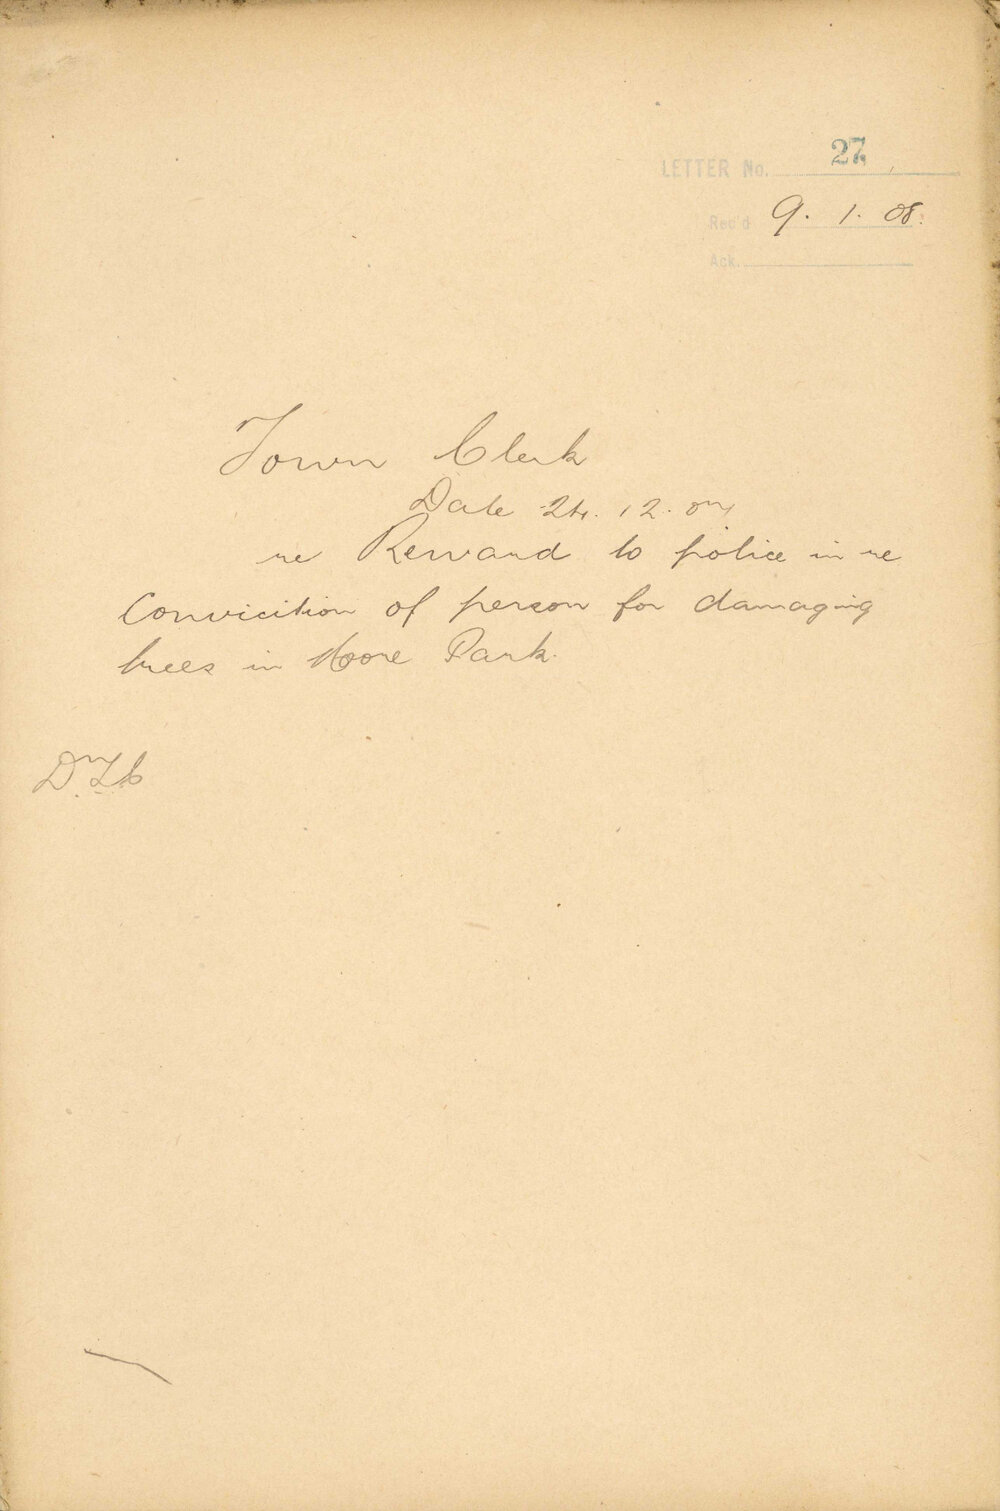 LETTER No. 27
Rec'd 9. 1. 08.
Ack.
Town Clerk
Date 24. 12. 07
re Reward to police in re
Conviction of person for damaging
trees in Moore Park.